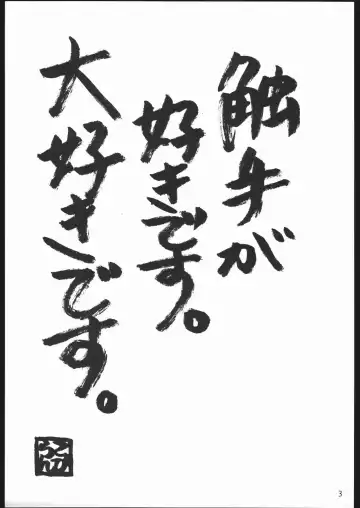 触手が
好きです。
大好きです。
3